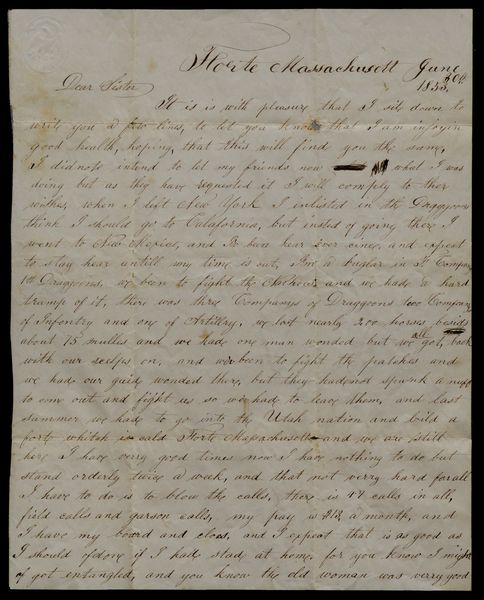 Forte Massachusett June 30th
1853.
Dear Sister
It is is with pleasure that I sit down to
write you a few lines, to let you know that I am injoyen
good health, hoping that this will find you the same,
I did note intend to let my friends now what I was
doing but as they have requested it I will comply to ther
wishes, when I left New York I inlisted in the Draggoons
think I should go to Califarnia, but insted of going there I
went to New Mexico, and Ive ben hear ever cince, and expect
to stay hear untill my time is out, I'm a buglar in F Company
1st Draggoons, we been to fight the and we hade a hard
tramp of it, there was three Companys of Draggoons two Companys
of Infontry and one of Artillery, we lost nearly 200 horses besids
about 75 mulles and we hade one man wonded but we all got back
with our seelps on, and we been to fight th patches and
we had our guid wonded there, but they had not spunk a nuff
to com out and fight us so we had to leave them, and last
summer we had to go into the Utah nation and bild a
fort whitch is cald Forte Massachusett and we are still
here I have verry good times now I have nothing to do but
stand orderly twice a week, and that not verry hard for all
I have to do is to blow the calls, there is 14 calls in all,
field calls and garson calls, my pay is $12 a month, and
I have my board and cloes, and I expect that is as good as
I should of done if I had stad at home, for you know I might
of got entangled, and you know the old woman was verry good